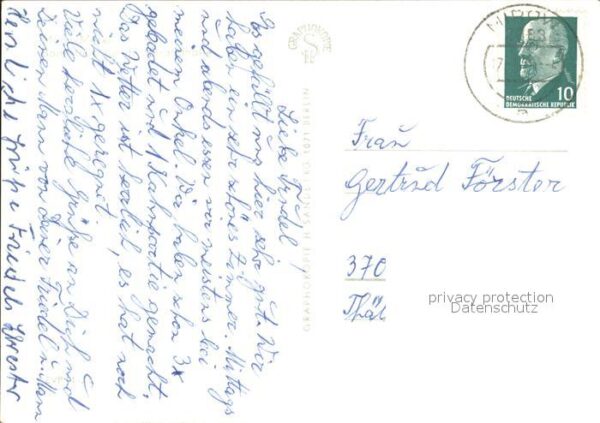 Liebe Friedel!
Es gefällt uns hier sehr gut. Wir
haben ein sehr schönes Zimmer. Mittags
und abends essen wir meistens bei
meinem Onkel. Wir haben schon 3x
gebadet und 1 Kahnpartie gemacht.
Das Wetter ist herrlich, es hat noch
nicht 1x geregnet.
Viele herzliche Grüße an Dich und
Deinen Mann von Deiner Friedel u. Mann
Herzliche Grüße Friedels
GRAPHOKOPIE
GRAPHOKOPIE H. SANDER KG 1071 BERLIN
MIROW
DEUTSCHE
DEMOKRATISCHE REPUBLIK
10
Frau
Gertrud Förster
370
privacy protection
Datenschutz